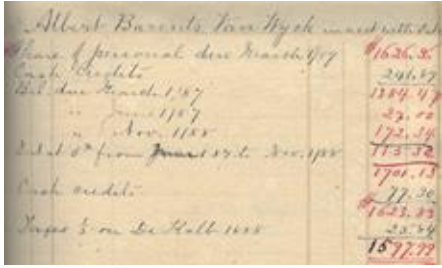 Albert Barents Van Wyck in acct with
Share of personal due March 1/87 $1626.
Cash Credits 241.
Bal due March 1/87 1384.47
" June 1/87
" Nov. 1/88 172.34
Int at from 1 87 to Nov. 1/88 115.32
1701.13
Cash credits 77.30
$1623.83
on De Kalb 1888
1597.99